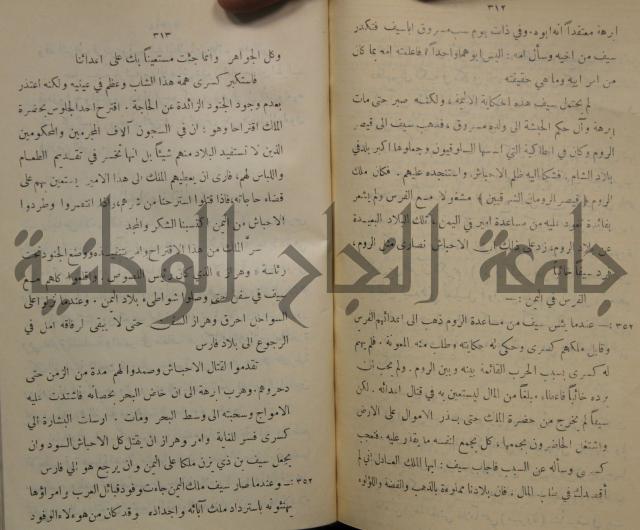 ٣١٢
ابرهة معتقداً انه ابوه . وفي ذات يوم سب مسروق اباسيف فتكدر
سيف من اخيه وسأل امه : اليس ابوهما واحداً ؟ فاعلمته امه بما كان
من امر ابيه وما هي حقيقته
لم يحتمل سيف هذه الحكاية الاثيمة ، ولكنه صبر حتى مات
ابرهة وآل حكم الحبشة الى ولده مسروق ، فذهب سيف الى قيصر
الروم وكان في انطاكية التي اسسها السلوقيون وجعلوها اكبر بلد في
بلاد الشام . فشكا اليه ظلم الاحباش واستنجده عليهم . فكان ملك
الروم ( قيصر الرومان الشرقيين ) مشغولا مع الفرس ولم يشعر
بفائدة تعود عليه من مساعدة امير في اليمن تلك البلاد البعيدة
عن بلاد الروم، زد على ذلك ان الاحباش نصارى مثل الروم،
فرد سيفاً خائباً
الفرس في اليمن :ـ
٣٥٢ :ـ عندما يئس سيف من مساعدة الروم ذهب الى اعدائهم الفرس
وقابل ملكهم كسرى وحكى له حكايته وطلب منه المعونة . فلم يهم
له كسرى بسبب الحرب القائمة بينه وبين الروم . ولم يحب ان
يرده خائباً فاعطاه مبلغاً من المال ليستعين به في قتال اعدائه . لكن
سيفاً لم يخرج من حضرة الملك حتى بذر الاموال على الارض
واشتغل الحاضرون بجمعها ، كل يجمع لنفسه ما يقدر عليه . فتعجب
كسرى وسأله عن السبب فاجاب سيف : ايها الملك العادل اني لم
أقصدك في طلب المال . فان بلادنا مملوءة بالذهب والفضة واللؤلؤ
٣١٣
وكل الجواهر وانما جئت مستعيناً بك على اعدائنا
فاستكبر كسرى همة هذا الشاب وعظم في عينيه ولكنه اعتذر
بعدم وجود الجنود الزائدة عن الحاجة . اقترح احد الجلوس بحضرة
الملك اقتراحا وهو : ان في السجون آلاف المجرمين والمحكومين
الذين لا تستفيد البلاد منهم شيئاً بل انها تخسر في تقديم الطعام
واللباس لهم، فأرى ان يعطيهم الملك الى هذا الامير يستعين بهم على
قضاء حاجاته، فاذا قتلوا استرحنا من شرهم، واذا انتصروا وطردوا
الاحباش من اليمن اكتسبنا الشكر والمجد
سرّ الملك من هذا الاقتراح وامر بتنفيذه ووضع الجنود تحت
رئاسة « وهراز » الذي كان رئيس اللصوص . واقلعوا كلهم مع
سيف في سفن حتى وصلوا شواطىء بلاد اليمن . وعندما نزلوا على
السواحل احرق وهراز السفن حتى لا يبقى لرفاقه امل في
الرجوع الى بلاد فارس
تقدموا لقتال الاحباش وصمدوا لهم مدة من الزمن حتى
دحروهم، وهرب ابرهة الى ان خاض البحر بحصانه فاشتدت عليه
الامواج وسحبته الى وسط البحر ومات . ارسلت البشارة الى
كسرى فسر للغاية وامر وهراز ان يقتل كل الاحباش السود وان
يجعل سيف بن ذي يزن ملكا على اليمن وان يرجع هو الى فارس
٣٥٢ ـ وعندما صار سيف ملك اليمن جاءت وفود قبائل العرب وامراؤها
يهنئونه باسترداد ملك آبائه واجداده وقد كان من هؤلاء الوفود
جامعة النجاح الوطنية